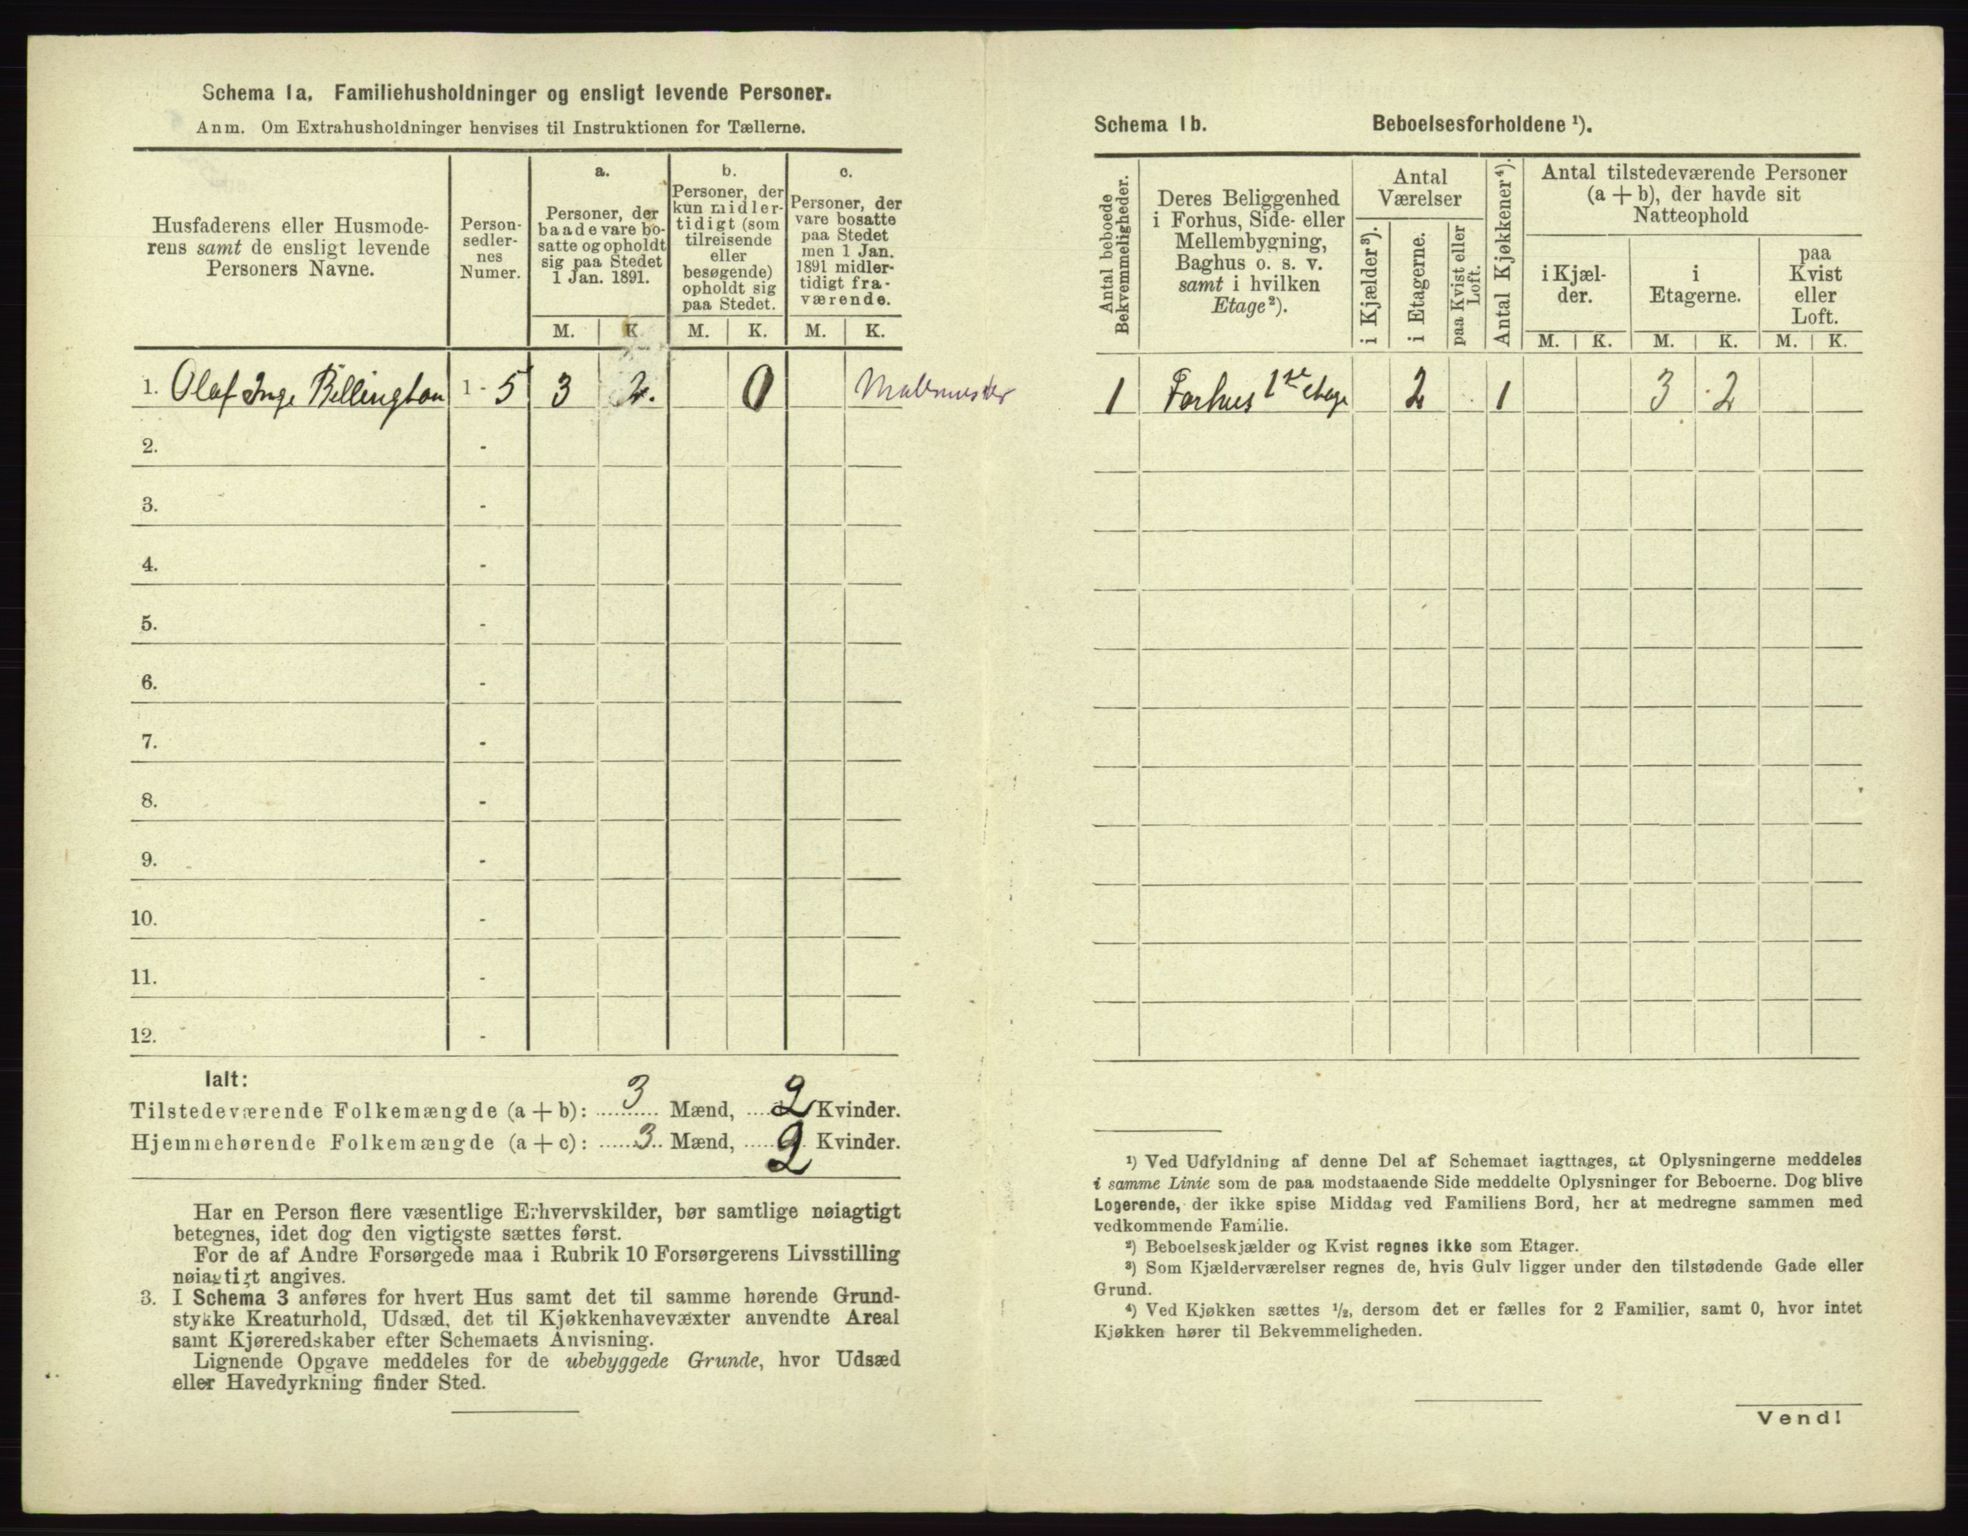 Schema 1a. Familiehusholdninger og ensligt levende Personer.
Anm. Om Extrahusholdninger henvises til Instruktionen for Tællerne.
Husfaderens eller Husmode-
rens samt de ensligt levende
Personers Navne.
Person-
sedler-
nes
Numer.
a.
Personer, der
baade vare bo-
satte og opholdt
sig paa Stedet
1 Jan. 1891.
b.
Personer, der
kun midler-
tidigt (som
tilreisende
eller
besøgende)
opholdt sig
paa Stedet.
c.
Personer, der
vare bosatte
paa Stedet
men 1 Jan.
1891 midler-
tidigt fra-
værende.
M. K. M. K. M. K.
1. Olaf Inge Billington 1 - 5 3 2. 0 Malermester
2. -
3. -
4. -
5. -
6. -
7. -
8. -
9. -
10. -
11. -
12. -
Ialt:
Tilstedeværende Folkemængde (a + b): 3 Mænd, 2 Kvinder.
Hjemmehørende Folkemængde (a + c): 3 Mænd, 2 Kvinder.
Har en Person flere væsentlige Erhvervskilder, bør samtlige nøiagtigt
betegnes, idet dog den vigtigste sættes først.
For de af Andre Forsørgede maa i Rubrik 10 Forsørgerens Livsstilling
nøiagtigt angives.
3. I Schema 3 anføres for hvert Hus samt det til samme hørende Grund-
stykke Kreaturhold, Udsæd, det til Kjøkkenhavevæxter anvendte Areal
samt Kjøreredskaber efter Schemaets Anvisning.
Lignende Opgave meddeles for de ubebyggede Grunde, hvor Udsæd
eller Havedyrkning finder Sted.
Schema 1b. Beboelsesforholdene ¹).
Antal beboede
Bekvemmeligheder.
Deres Beliggenhed
i Forhus, Side- eller
Mellembygning,
Baghus o. s. v.
samt i hvilken
Etage²).
Antal
Værelser
i Kjælder³).
i Etagerne.
paa Kvist eller
Loft.
Antal Kjøkkener⁴).
Antal tilstedeværende Personer
(a + b), der havde sit
Natteophold
i Kjæl-
der.
i
Etagerne.
paa
Kvist
eller
Loft.
M. K. M. K. M. K.
1 Forhus 1ste etage 2 1 3 2
¹) Ved Udfyldning af denne Del af Schemaet iagttages, at Oplysningerne meddeles
i samme Linie som de paa modstaaende Side meddelte Oplysninger for Beboerne. Dog blive
Logerende, der ikke spise Middag ved Familiens Bord, her at medregne sammen med
vedkommende Familie.
²) Beboelseskjælder og Kvist regnes ikke som Etager.
³) Som Kjælderværelser regnes de, hvis Gulv ligger under den tilstødende Gade eller
Grund.
⁴) Ved Kjøkken sættes ½, dersom det er fælles for 2 Familier, samt 0, hvor intet
Kjøkken hører til Bekvemmeligheden.
Vend!